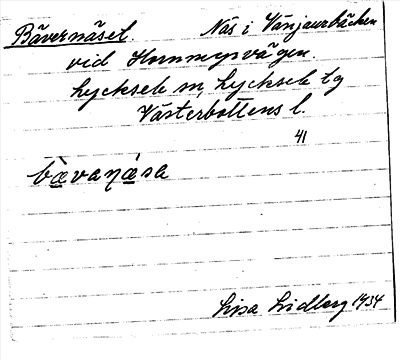 Bävernäset. Näs i Vänjaurbäcken
vid Hornmyrvägen.
Lycksele sn, Lycksele tg
Västerbottens l.
41
bævaηæsa
Lisa Lidberg 1934